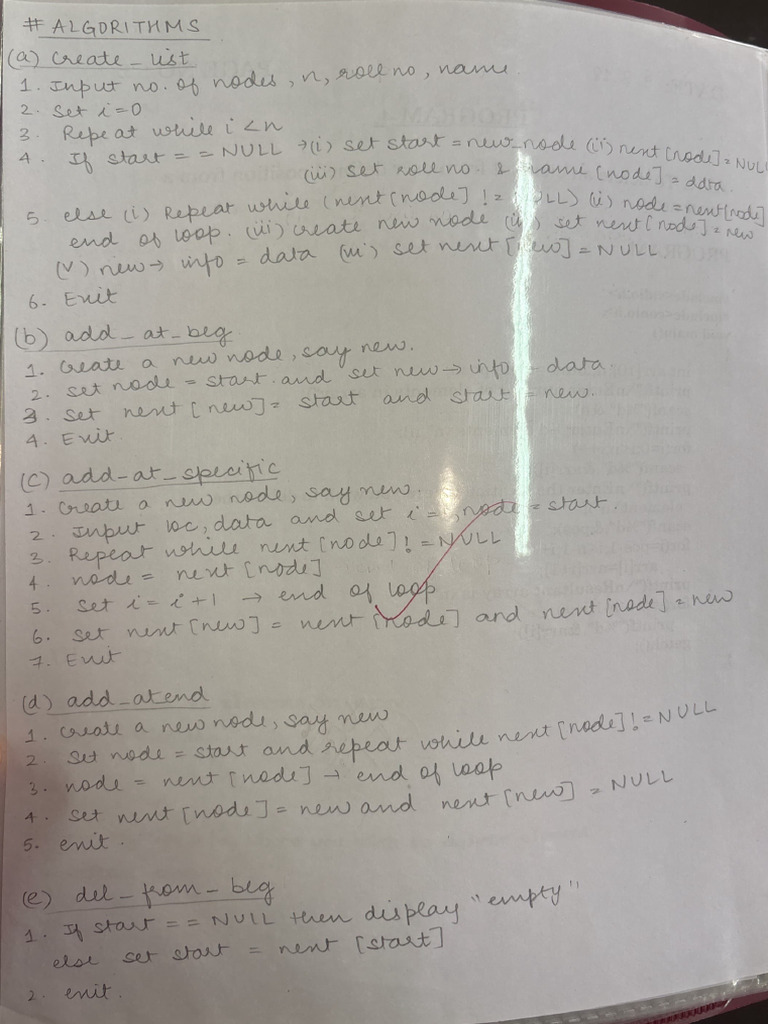 # ALGORITHMS
(a) create_list
1. Input no. of nodes, n, roll no, name
2. Set i=0
3. Repeat while i<n
4. If start == NULL →(i) set start = new_node (ii) next[node]= NULL
(iii) set roll no & name [node] = data.
5. else (i) Repeat while (next[node] != NULL) (ii) node = next[node]
end of loop. (iii) create new node (iv) set next[node] = new
(v) new → info = data (vi) set next [new] = NULL
6. Exit
(b) add_at_beg
1. Create a new node, say new.
2. set node = start and set new → info = data.
3. set next [new] = start and start = new.
4. Exit.
(c) add-at_specific
1. Create a new node, say new.
2. Input loc, data and set i = , node = start.
3. Repeat while next [node] != NULL
4. node = next [node]
5. set i = i+1 → end of loop
6. set next [new] = next [node] and next [node] = new
7. Exit
(d) add_atend
1. Create a new node, say new
2. Set node = start and repeat while next [node] != NULL
3. node = next [node] → end of loop
4. set next [node] = new and next [new] = NULL
5. exit.
(e) del_from_beg
1. If start == NULL then display "empty"
else set start = next [start]
2. exit.